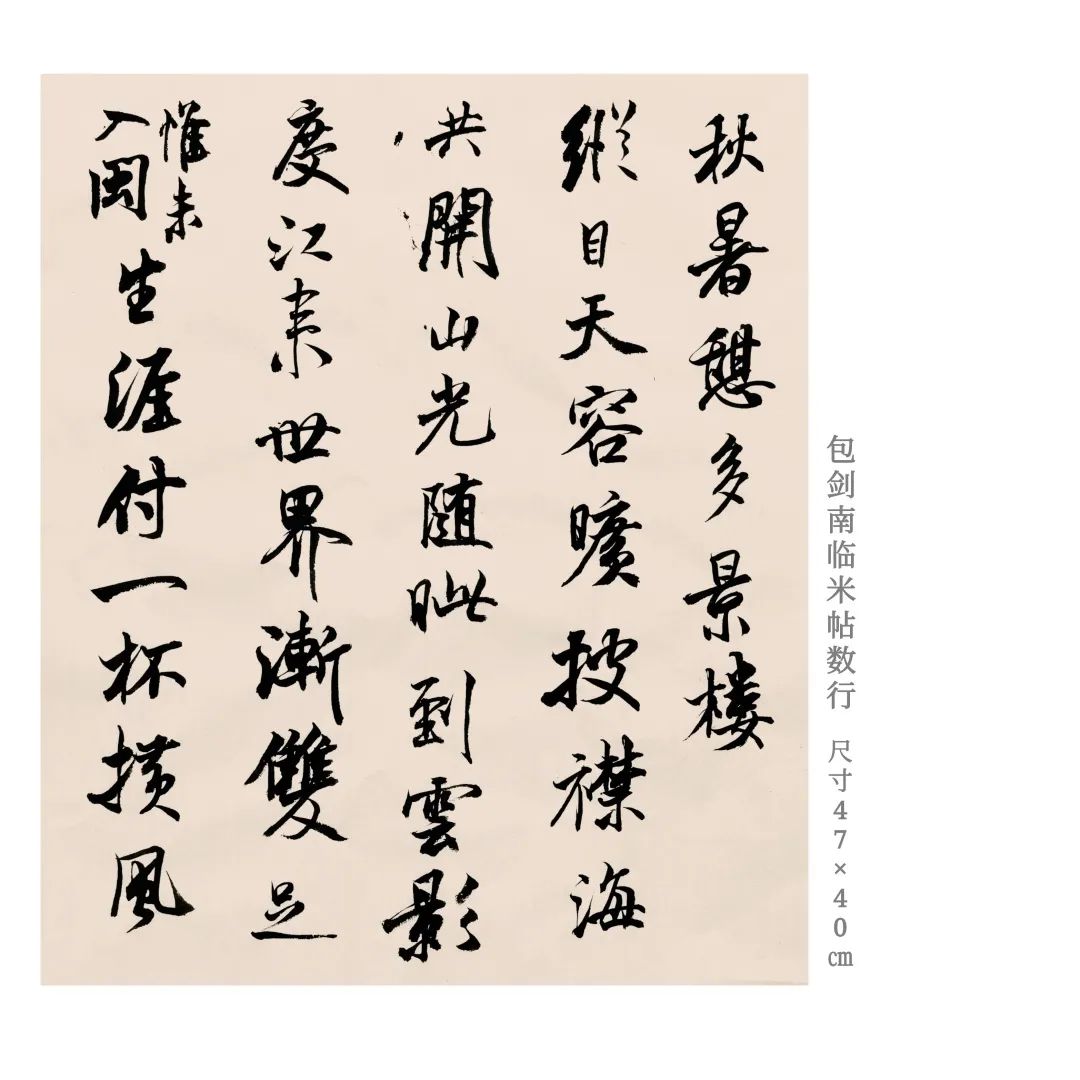 秋暑憩多景樓
縱目天容曠披襟海
共開山光随眦到雲影
度江来世界漸雙足
惟未
入閩生涯付一杯横風
包剑南临米帖数行 尺寸47×40㎝